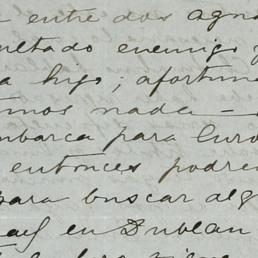 entre dos agua
ultado enemigo y
a hijo; afortuna
mos nada —
mbarca para Euro
entonces podre
para buscar alg
en Dublan